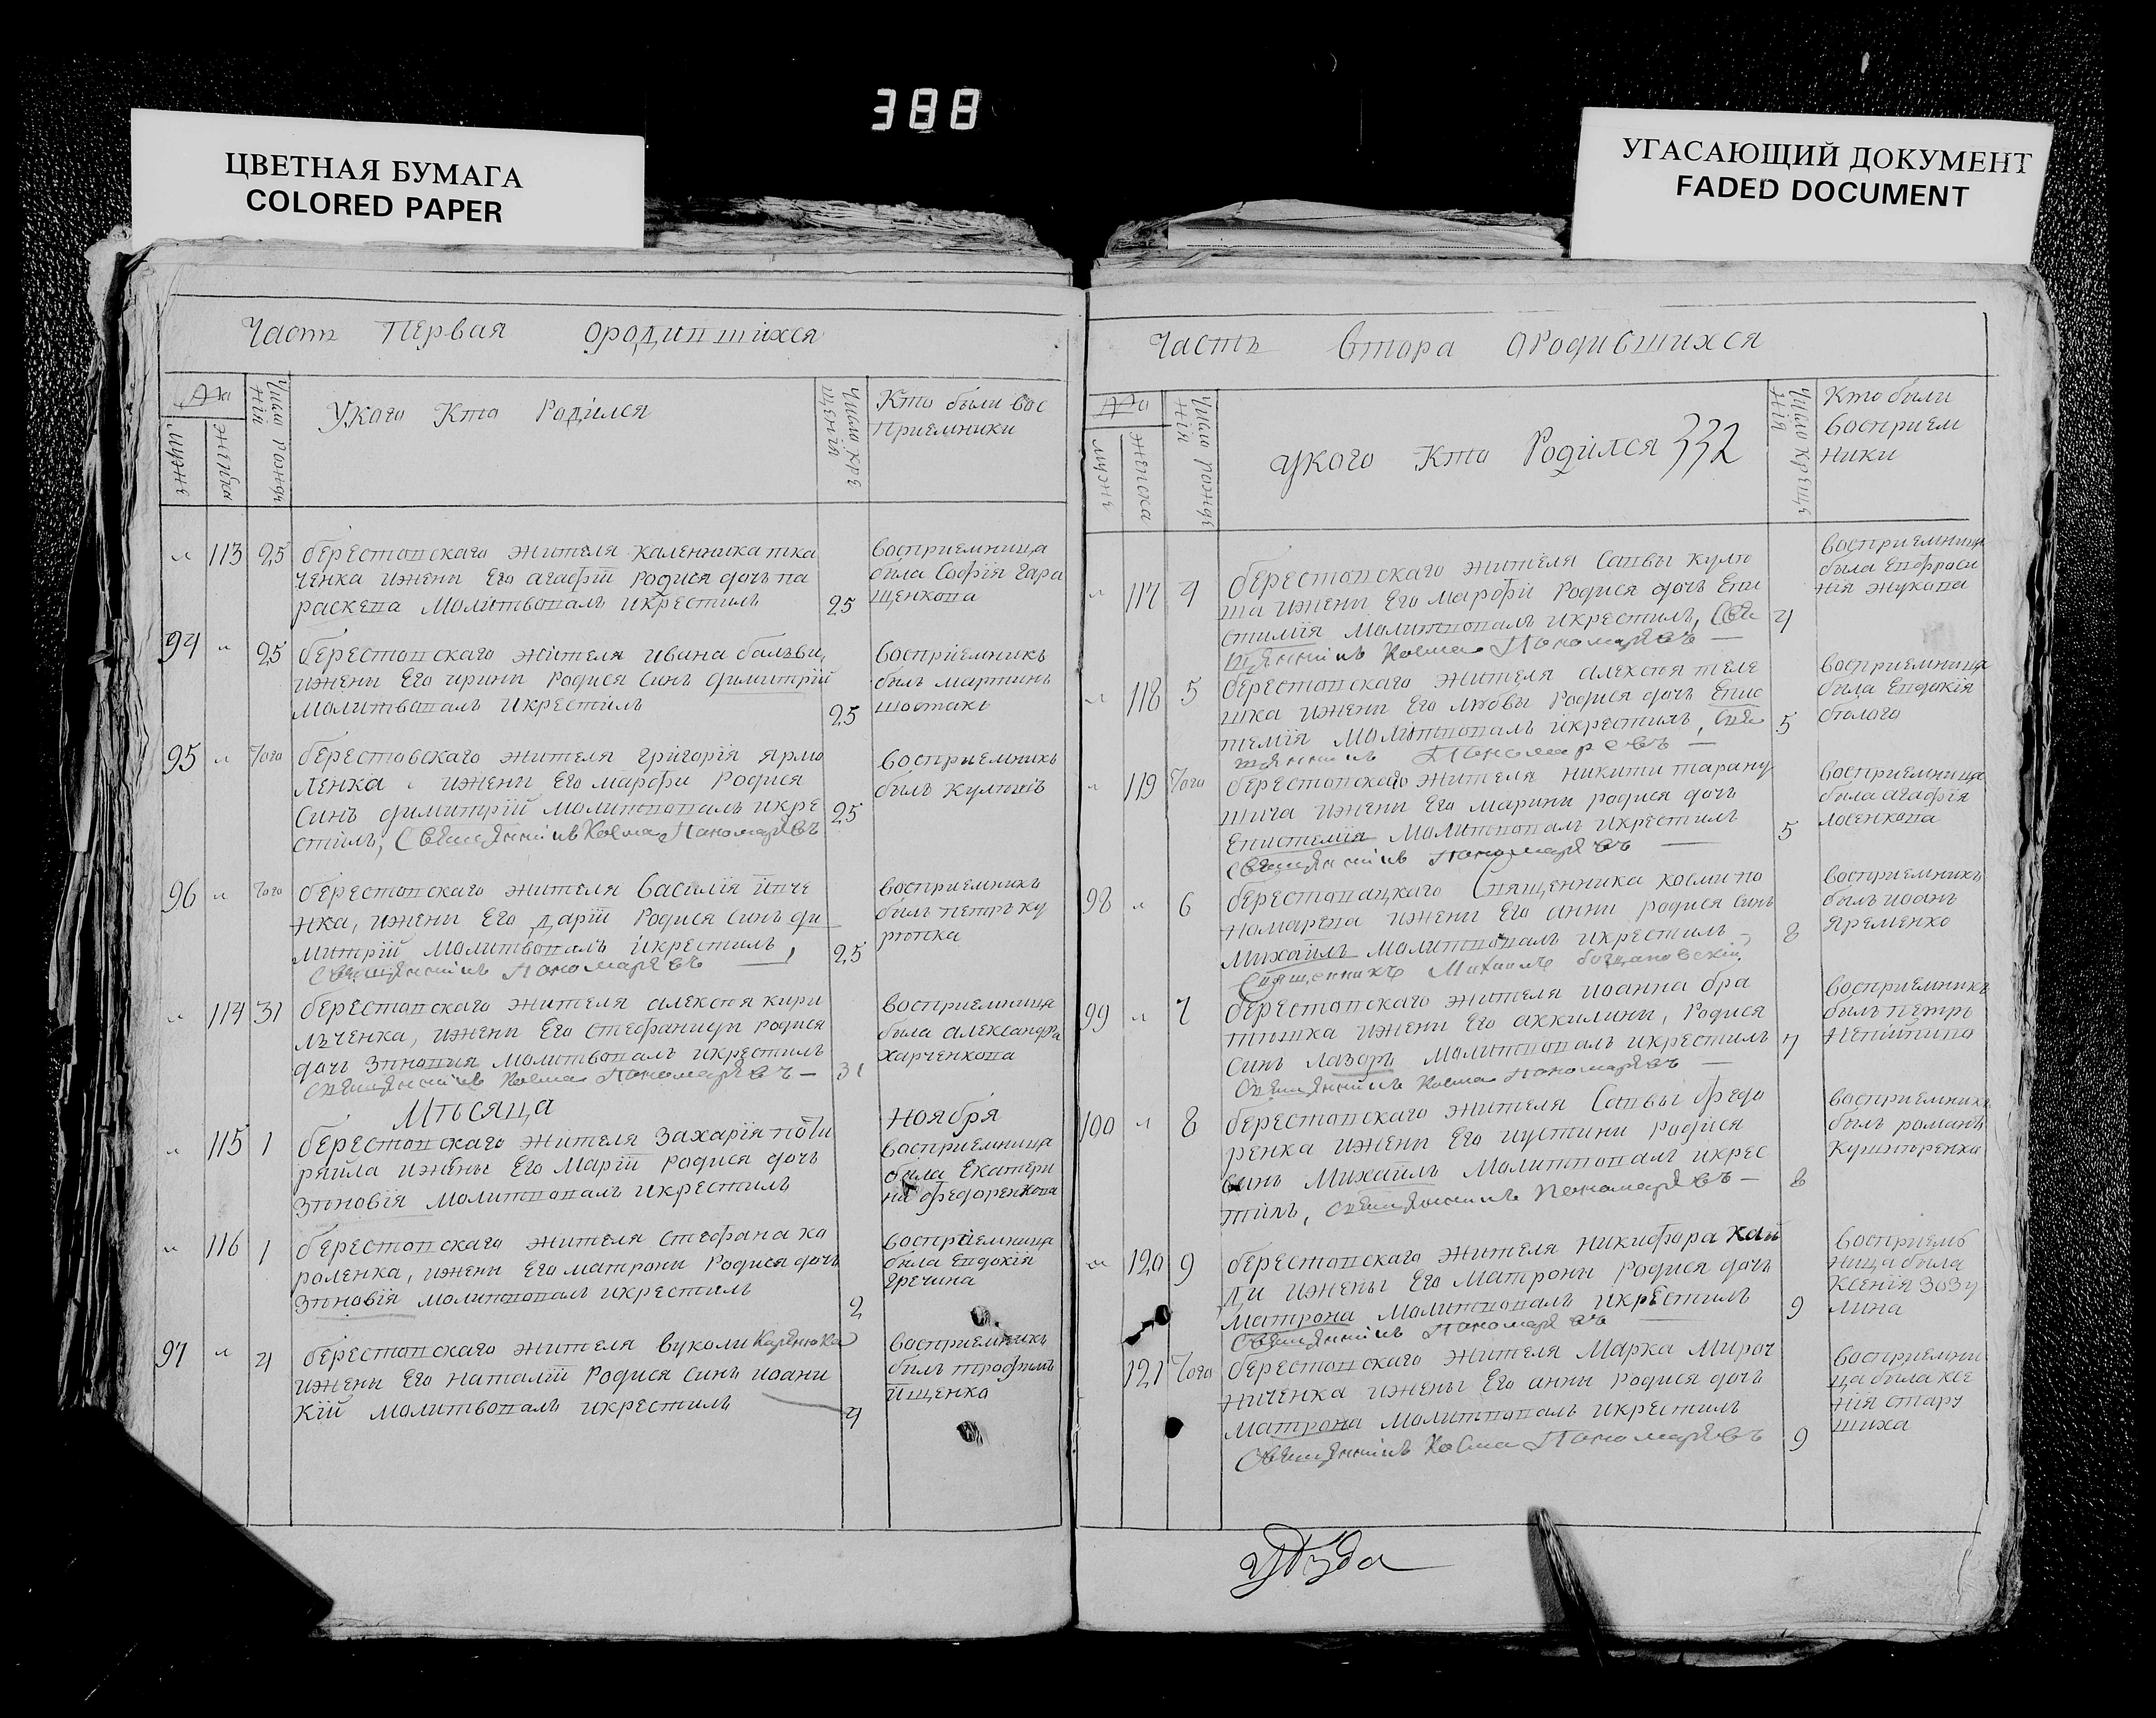 388
ЦВЕТНАЯ БУМАГА
COLORED PAPER
УГАСАЮЩИЙ ДОКУМЕНТ
FADED DOCUMENT
Часть Первая ородившихся
№
мужс
женска
Число рожде
нія
Укого Кто Родился
Число кре
щенія
Кто были вос
Приемники
" 113 25 берестовскаго жителя каленника тка
ченка ижени Его агафіи Родися дочь па
раскева Молитвовалъ икрестилъ 25
восприемница
била Софія Гара
щенкова
94 " 25 берестовскаго жителя ивана
ижени Его ирини Родися Синъ Димитрій
Молитвовалъ Икрестилъ 25
восприемникъ
билъ мартинъ
шостакъ
95 " Того берестовскаго жителя григорія Ярмо
ленка ижени Его марфи Родися
Синъ димитрій молитвовалъ икре
стилъ, Священникъ Косма Пономаревъ 25
восприемникъ
билъ
96 " Того берестовскаго жителя Василія
нка, ижени Его даріи Родися Синъ ди
митрій молитвовалъ икрестилъ, 25
Священникъ Пономаревъ
восприемникъ
билъ петръ ку
" 114 31 берестовскаго жителя алексея кири
льченка, ижени Его стефаниди родися
дочь Зиновия молитвовалъ икрестилъ
Священникъ Косма Пономаревъ 31
восприемница
била александра
харченкова
Мѣсяца Ноября
" 115 1 берестовскаго жителя Захарія
ижены Его Маріи Родися дочь
Зиновія молитвовалъ икрестилъ
восприемница
била Екатери
на федоренкова
" 116 1 берестовскаго жителя стефана ко
роленка, ижени Его матрони Родися дочь
Зиновія молитвовалъ икрестилъ 2
восприемница
била Евдокія
гречина
97 " 4 берестовскаго жителя вуколи
ижени Его наталіи Родися Синъ иоани
кій молитвовалъ икрестилъ 4
восприемникъ
билъ трофимъ
ищенко
Часть Втора ородившихся
№
мужс
женска
Число рожде
нія
укого Кто Родился 332
Число креще
нія
Кто были
восприем
ники
" 117 4 берестовскаго жителя Саввы
ижени Его марфи Родися дочь Епи
стимия Молитвовалъ икрестилъ, Свя 4
щенникъ Косма Пономаревъ
восприемница
была Евфроси
нія жукова
" 118 5 берестовскаго жителя алексея теле
ижени Его любвы Родися дочь Епис
темія Молитвовалъ икрестилъ, Свя 5
щенникъ Пономаревъ
восприемница
била Евдокія
" 119 Того берестовскаго жителя никити тарану
шича ижени Его Марини родися дочь
Епистемія Молитвовалъ Икрестилъ 5
Священникъ Пономаревъ
восприемница
была агафія
98 " 6 Священника косми по
номарева ижени Его анни родися Синъ
Михаилъ Молитвовалъ икрестилъ 8
Священникъ Михаилъ Богдановскій
восприемникъ
былъ иоанъ
Яременко
99 " 7 берестовскаго жителя иоанна бра
ижени Его аккилини, Родися
Синъ лазарь Молитвовалъ икрестилъ 7
Священникъ Косма Пономаревъ
восприемникъ
былъ петръ
100 " 8 берестовскаго жителя Саввы федо
ренка ижени Его иустини родися
Синъ Михаилъ Молитвовалъ икрес
тилъ, Священникъ Пономаревъ 8
восприемникъ
былъ романъ
" 120 9 берестовскаго жителя никифора
ижены Его Матрони Родися дочь
Матрона Молитвовалъ икрестилъ 9
Священникъ Пономаревъ
восприемъ
ница была
Ксенія Зозу
лина
121 Того берестовскаго жителя Марка Мирош
ниченка ижены Его анни Родися дочь
Матрона Молитвовалъ икрестилъ
Священникъ Косма Пономаревъ 9
восприемни
ца была ксе
нія стару
шиха